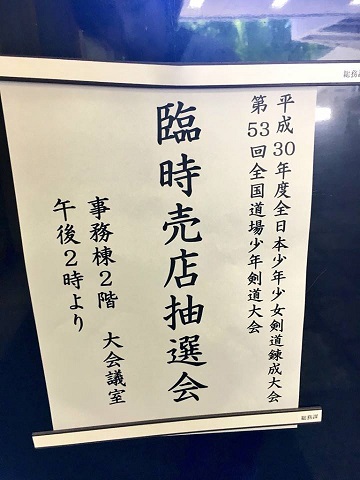 平成30年度全日本少年少女剣道錬成大会
第53回全国道場少年剣道大会
臨時売店抽選会
事務棟2階 大会議室
午後2時より
総務課
総務課